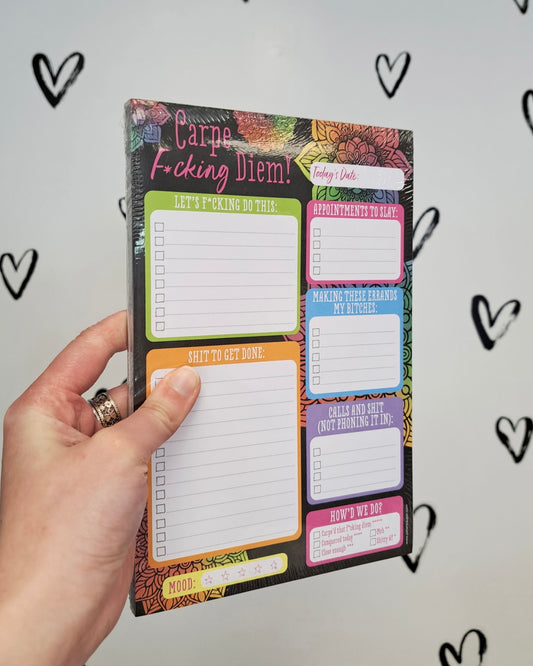 Carpe
F*cking Diem!
Today's Date:
LET'S F*CKING DO THIS:
APPOINTMENTS TO SLAY:
MAKING THESE ERRANDS
MY BITCHES:
SHIT TO GET DONE:
CALLS AND SHIT
(NOT PHONING IT IN):
HOW'D WE DO?
Carpe'd that f*cking diem
Conquered today
Close enough
Meh
Shitty AF
MOOD: